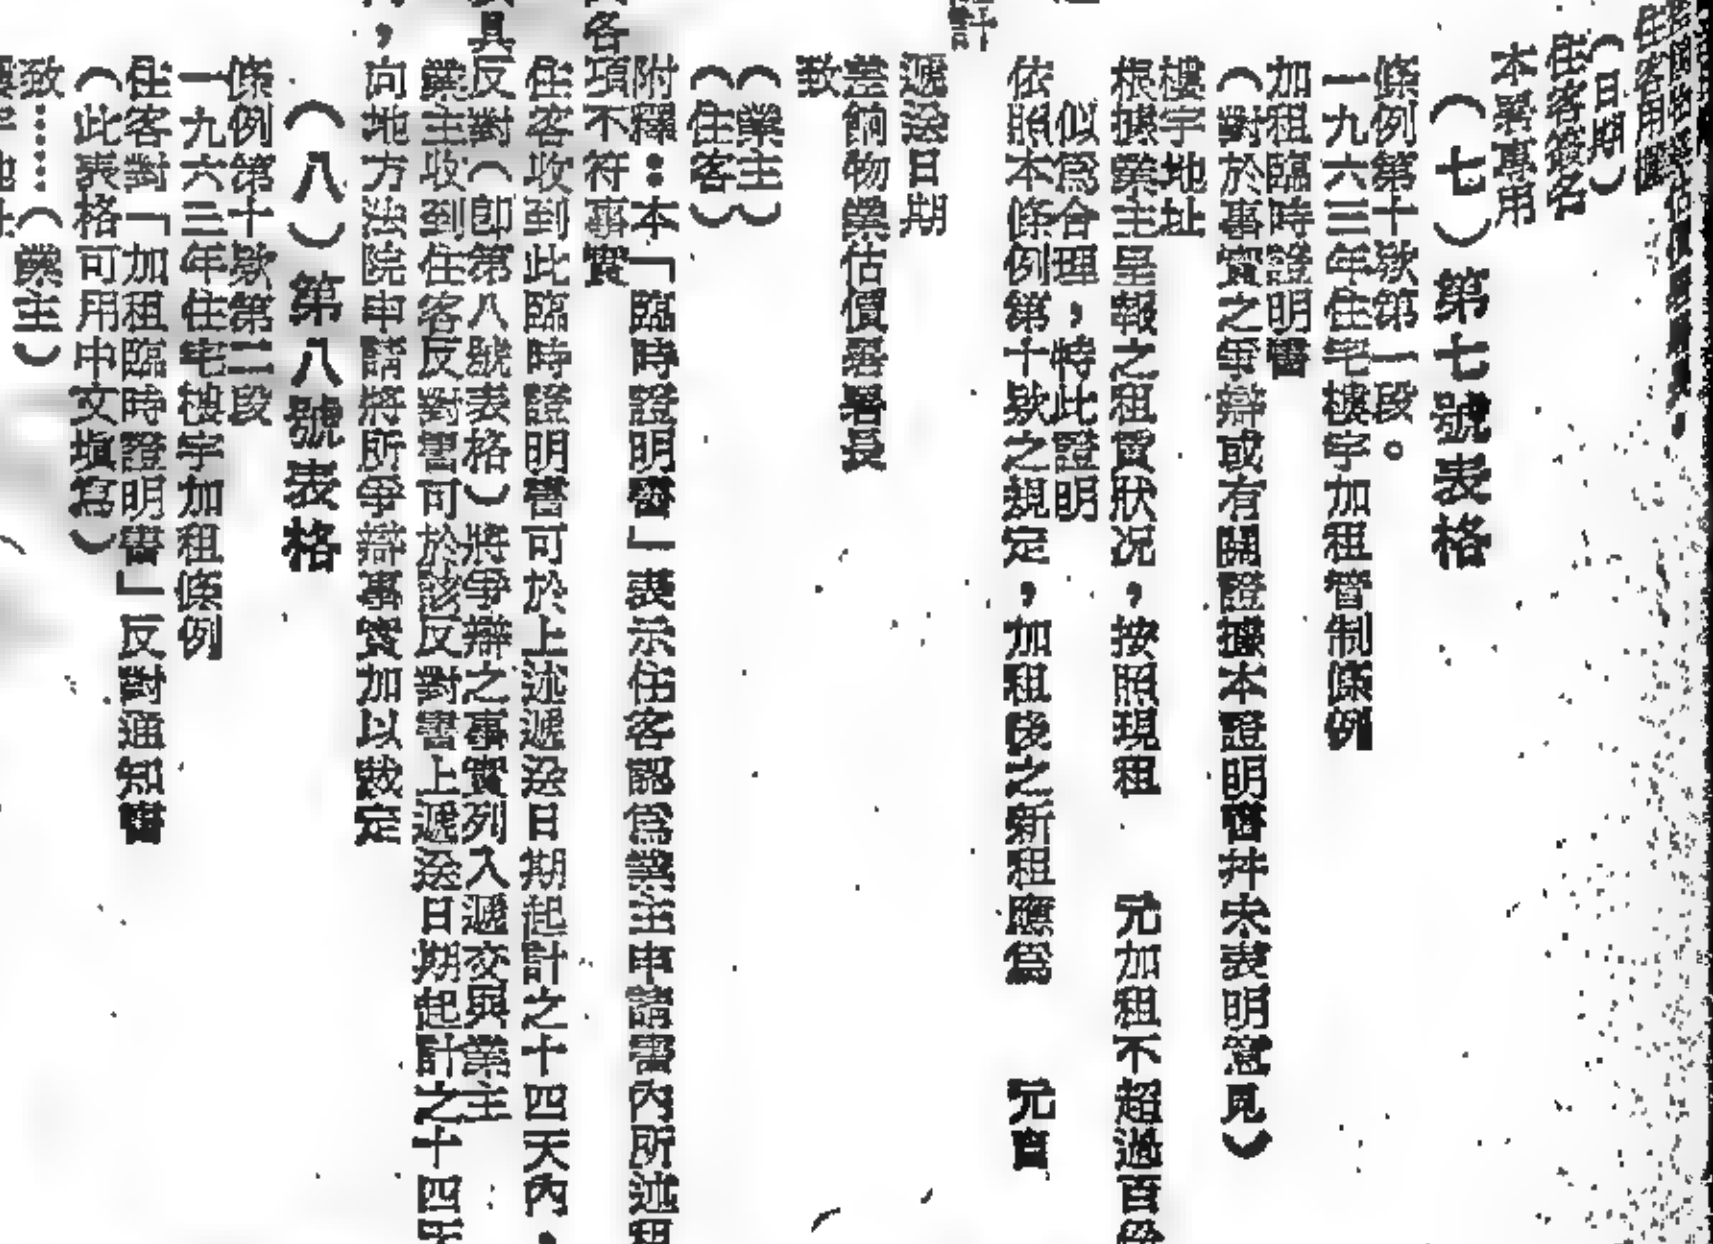 住客用欄
（日期）
住客簽名
本署專用
（七）第七號表格
條例第十欵第一段。
一九六三年住宅樓宇加租管制條例
加租臨時證明書
（對於事實之爭辯或有關證據本證明書幷未表明意見）
樓宇地址
根據業主呈報之租賃狀况，按照現租 元加租不超過百份
似爲合理，特此證明
依照本條例第十欵之規定，加租後之新租應爲 元直
計
遞送日期
差餉物業估價署署長
致
（業主）
（住客）
附釋：本「臨時證明書」表示住客認爲業主申請書內所述租
各項不符事實
住客收到此臨時證明書可於上述遞送日期起計之十四天內，
具反對（卽第八號表格）將爭辯之事實列入遞交與業主
業主收到住客反對書可於該反對書上遞送日期起計之十四天
，向地方法院申請將所爭辯事實加以裁定
（八）第八號表格
條例第十欵第二段
一九六三年住宅樓宇加租條例
住客對「加租臨時證明書」反對通知書
（此表格可用中文塡寫）
致……（業主）